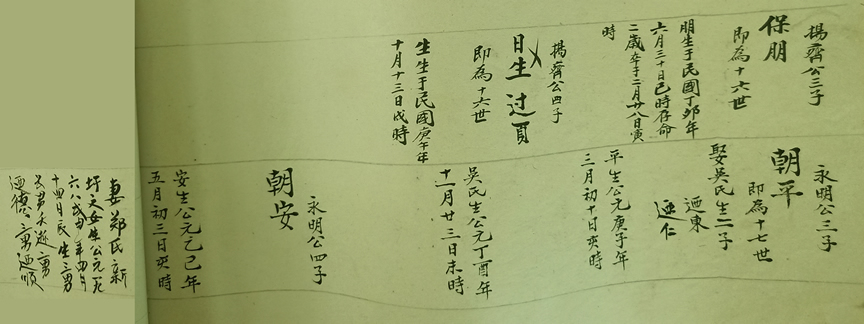 揚齊公三子
保朋
即為十六世
朋生于民國丁卯年
六月三十日巳時存命
二歲卒于二月廿八日寅
時
揚齊公四子
日生 过頁
即為十六世
生生于民國庚午年
十月十三日戌時
永明公三子
朝平
即為十七世
娶吳氏生二子
迺東
迺仁
平生公元庚子年
三月初十日亥時
吳氏生公元丁酉年
十一月廿三日未時
永明公四子
朝安
安生公元乙巳年
五月初三日亥時
妻鄭氏新
圩天女生公元一九
六八戊申年四月
十四日辰生三男